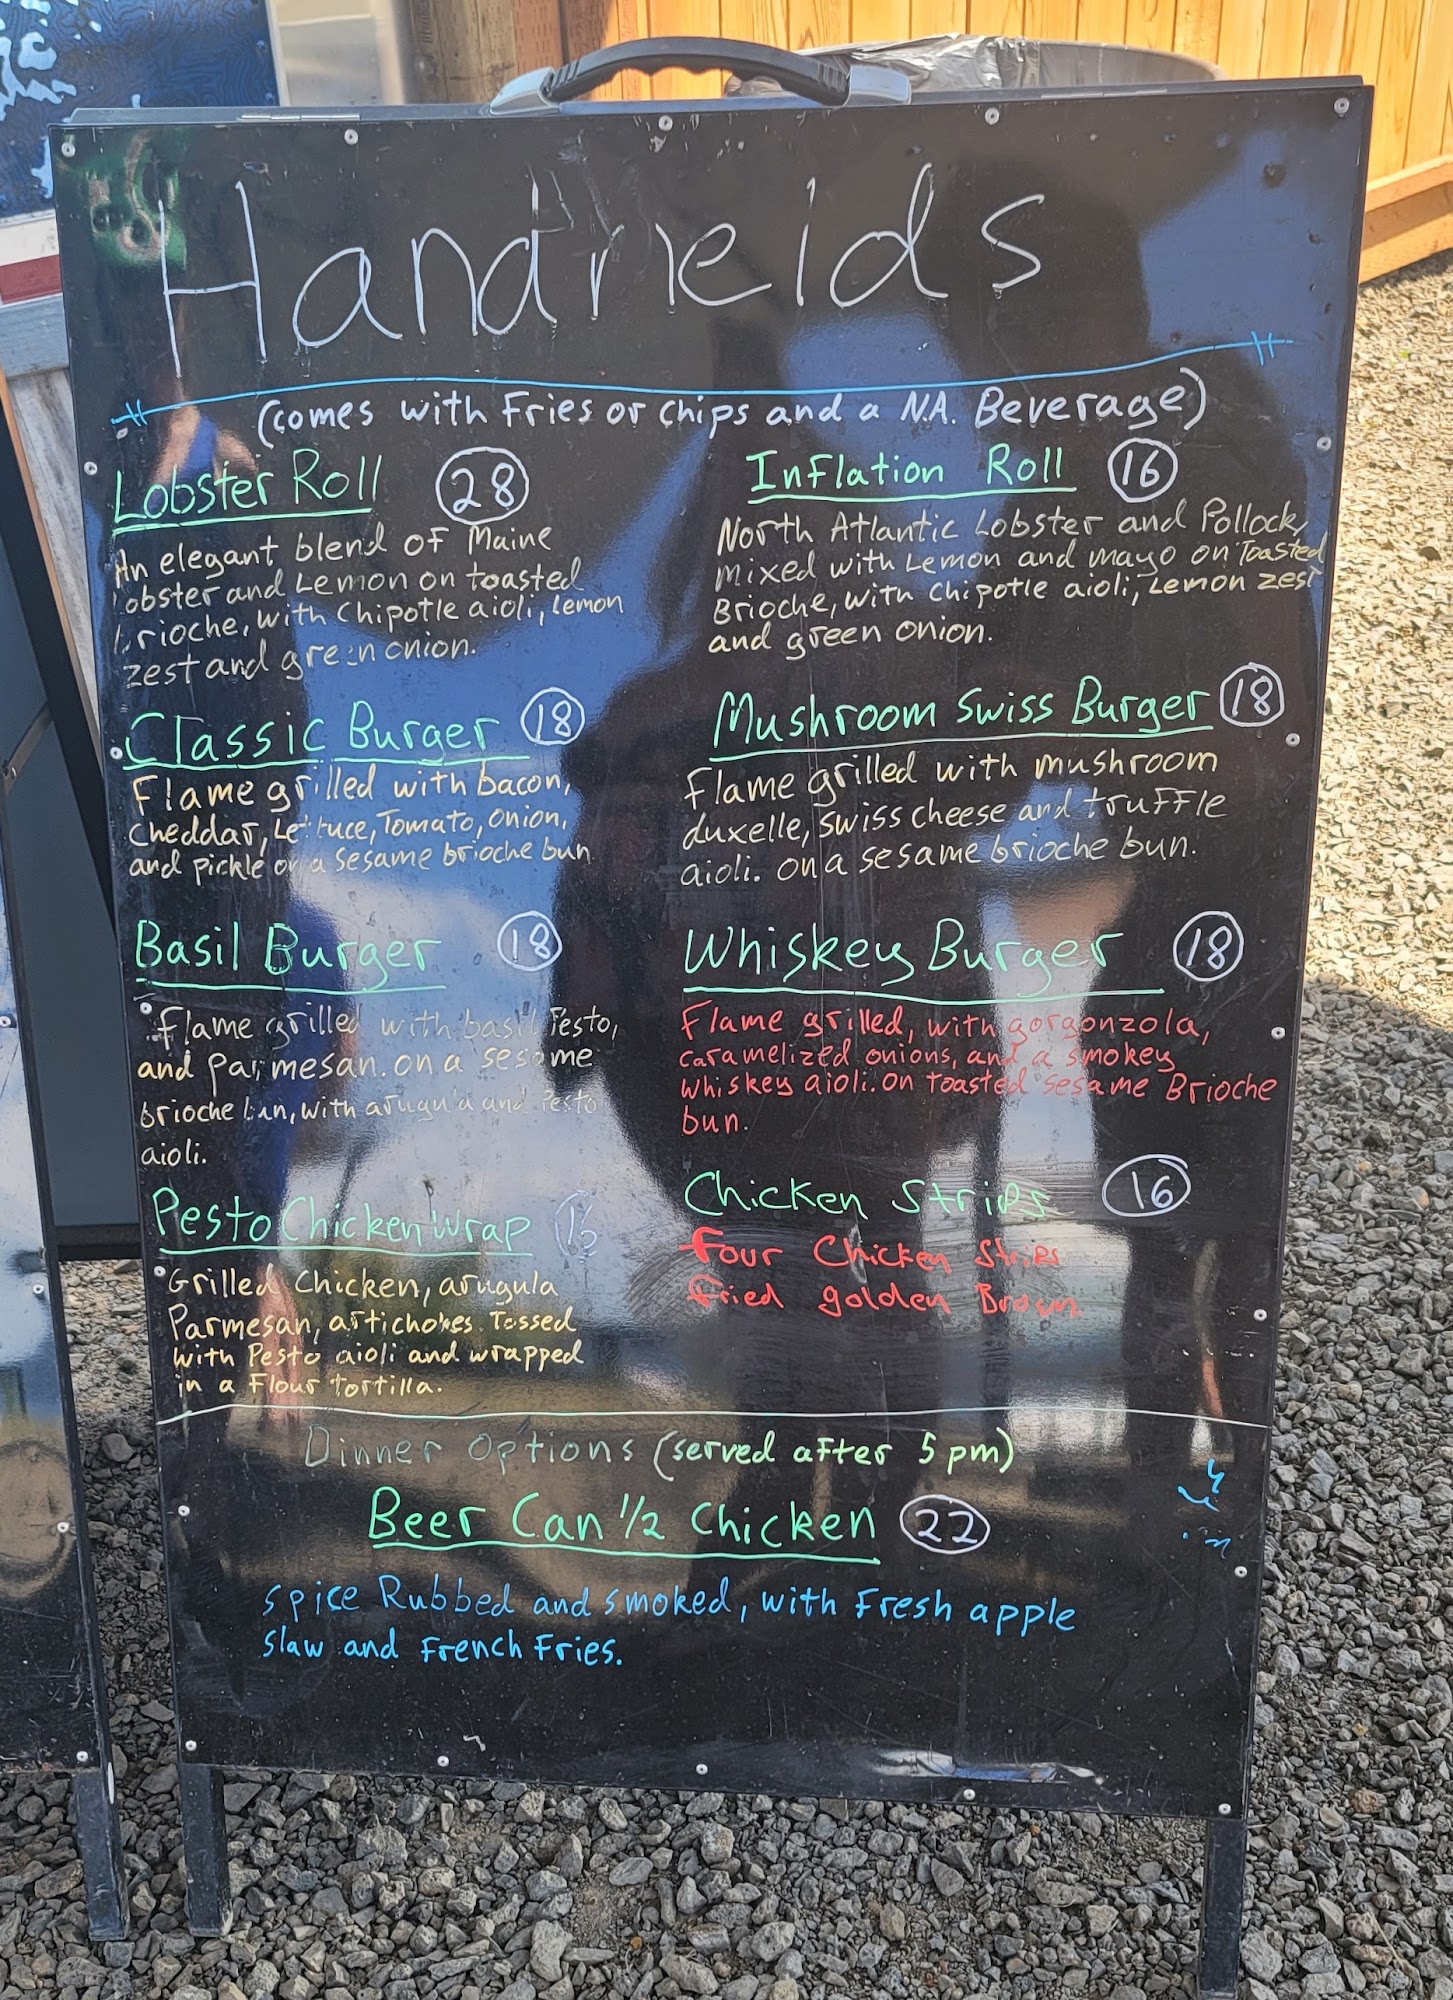 Handheids
(comes with Fries or Chips and a N.A. Beverage)
Lobster Roll 28
An elegant blend of Maine
Lobster and Lemon on toasted
brioche, with Chipotle aioli, lemon
zest and green onion.
Inflation Roll 16
North Atlantic Lobster and Pollock,
Mixed with Lemon and mayo on Toasted
Brioche, with Chipotle aioli, Lemon zest
and green onion.
Classic Burger 18
Flame grilled with bacon,
Cheddar, Lettuce, Tomato, onion,
and pickle on a sesame brioche bun
Mushroom Swiss Burger 18
Flame grilled with mushroom
duxelle, swiss cheese and truffle
aioli. on a sesame brioche bun.
Basil Burger 18
Flame grilled with basil Pesto,
and Parmesan. on a sesame
brioche bun, with arugula and Pesto
aioli.
Whiskey Burger 18
Flame grilled, with gorgonzola,
caramelized onions, and a smokey
whiskey aioli. on toasted sesame Brioche
bun.
Pesto Chicken Wrap 16
Grilled Chicken, arugula
Parmesan, artichokes Tossed
with Pesto aioli and wrapped
in a Flour tortilla.
Chicken Strips 16
Four Chicken Strips
fried golden Brown
Dinner Options (served after 5 pm)
Beer Can 1/2 Chicken 22
Spice Rubbed and smoked, with Fresh apple
slaw and French Fries.